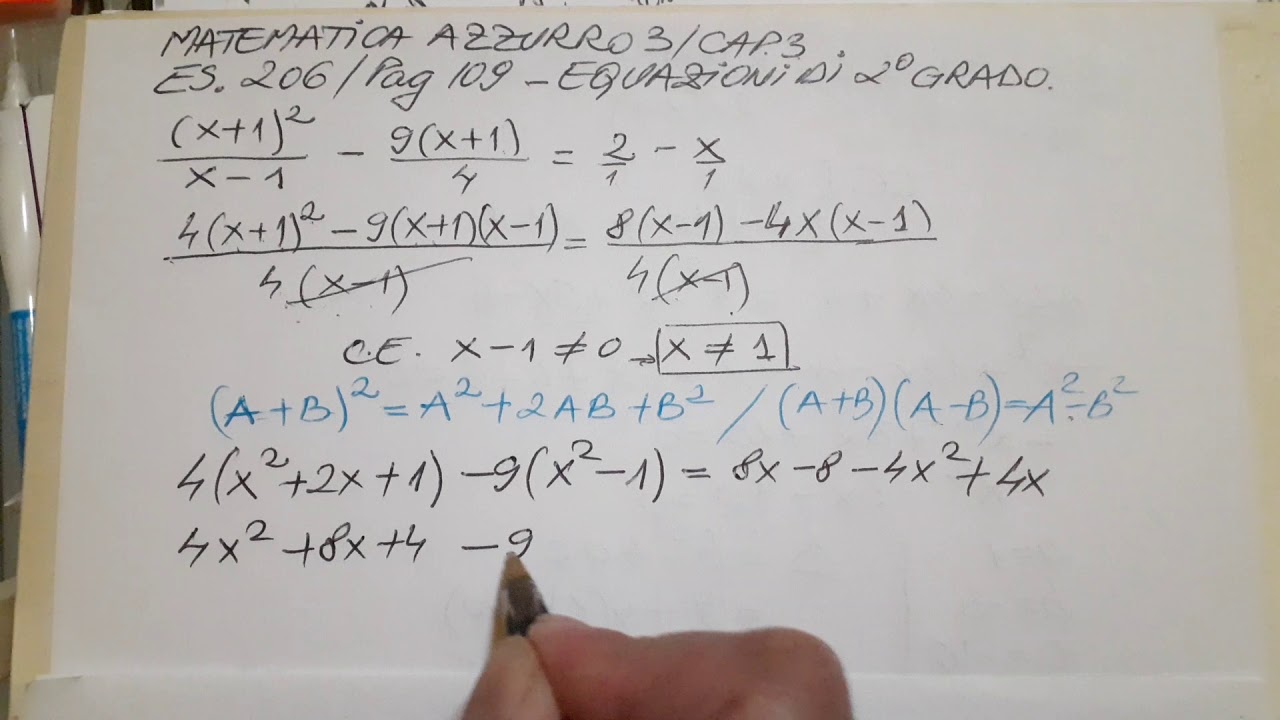 MATEMATICA AZZURRO 3/CAP.3
ES. 206/Pag 109 - EQUAZIONI DI 2° GRADO.
(x+1)²/(x-1) - 9(x+1)/4 = 2/1 - x/1
4(x+1)² - 9(x+1)(x-1)/4(x-1) = 8(x-1) - 4x(x-1)/4(x-1)
C.E. x-1≠0 → x≠1
(A+B)² = A²+2AB+B² / (A+B)(A-B)=A²-B²
4(x²+2x+1) - 9(x²-1) = 8x-8-4x²+4x
4x²+8x+4 -9